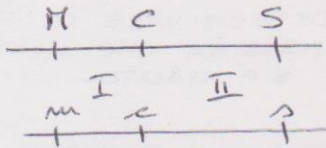 M C S
I II
m c s